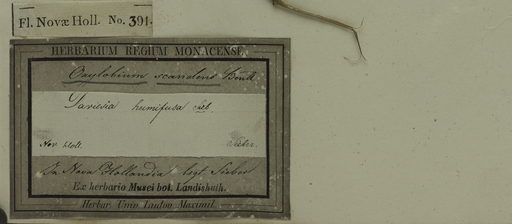 Fl. Novæ Holl. No. 391.
HERBARIUM REGIUM MONACENSE.
Oxylobium scandens Benth
Daviesia humifusa Sieb.
Nov. Holl. Sieber.
In Nova Hollandia legt Sieber
Ex herbario Musei bot. Landishuth.
Herbar. Univ. Ludov. Maximil.